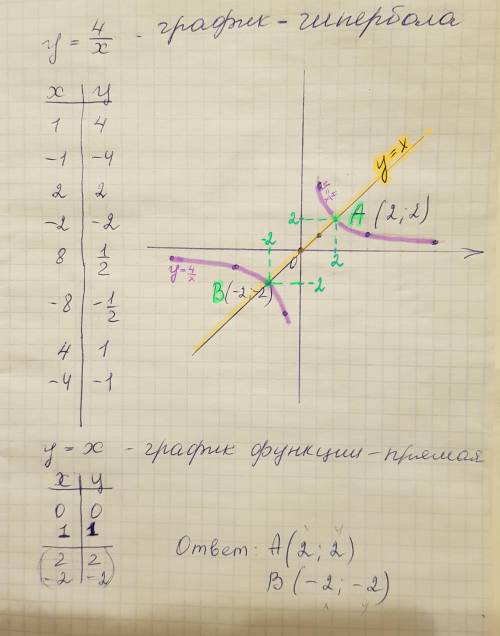 y = 4/x - график - гипербола
x | y
1 | 4
-1 | -4
2 | 2
-2 | -2
8 | 1/2
-8 | -1/2
4 | 1
-4 | -1
y = x
y = 4/x
A (2; 2)
2
-2
0
2
y = 4/x
-2
B(-2; -2)
y = x - график функции - прямая
x | y
0 | 0
1 | 1
(2 | 2)
(-2 | -2)
Ответ: A(2; 2)
x y
B(-2; -2)
x y